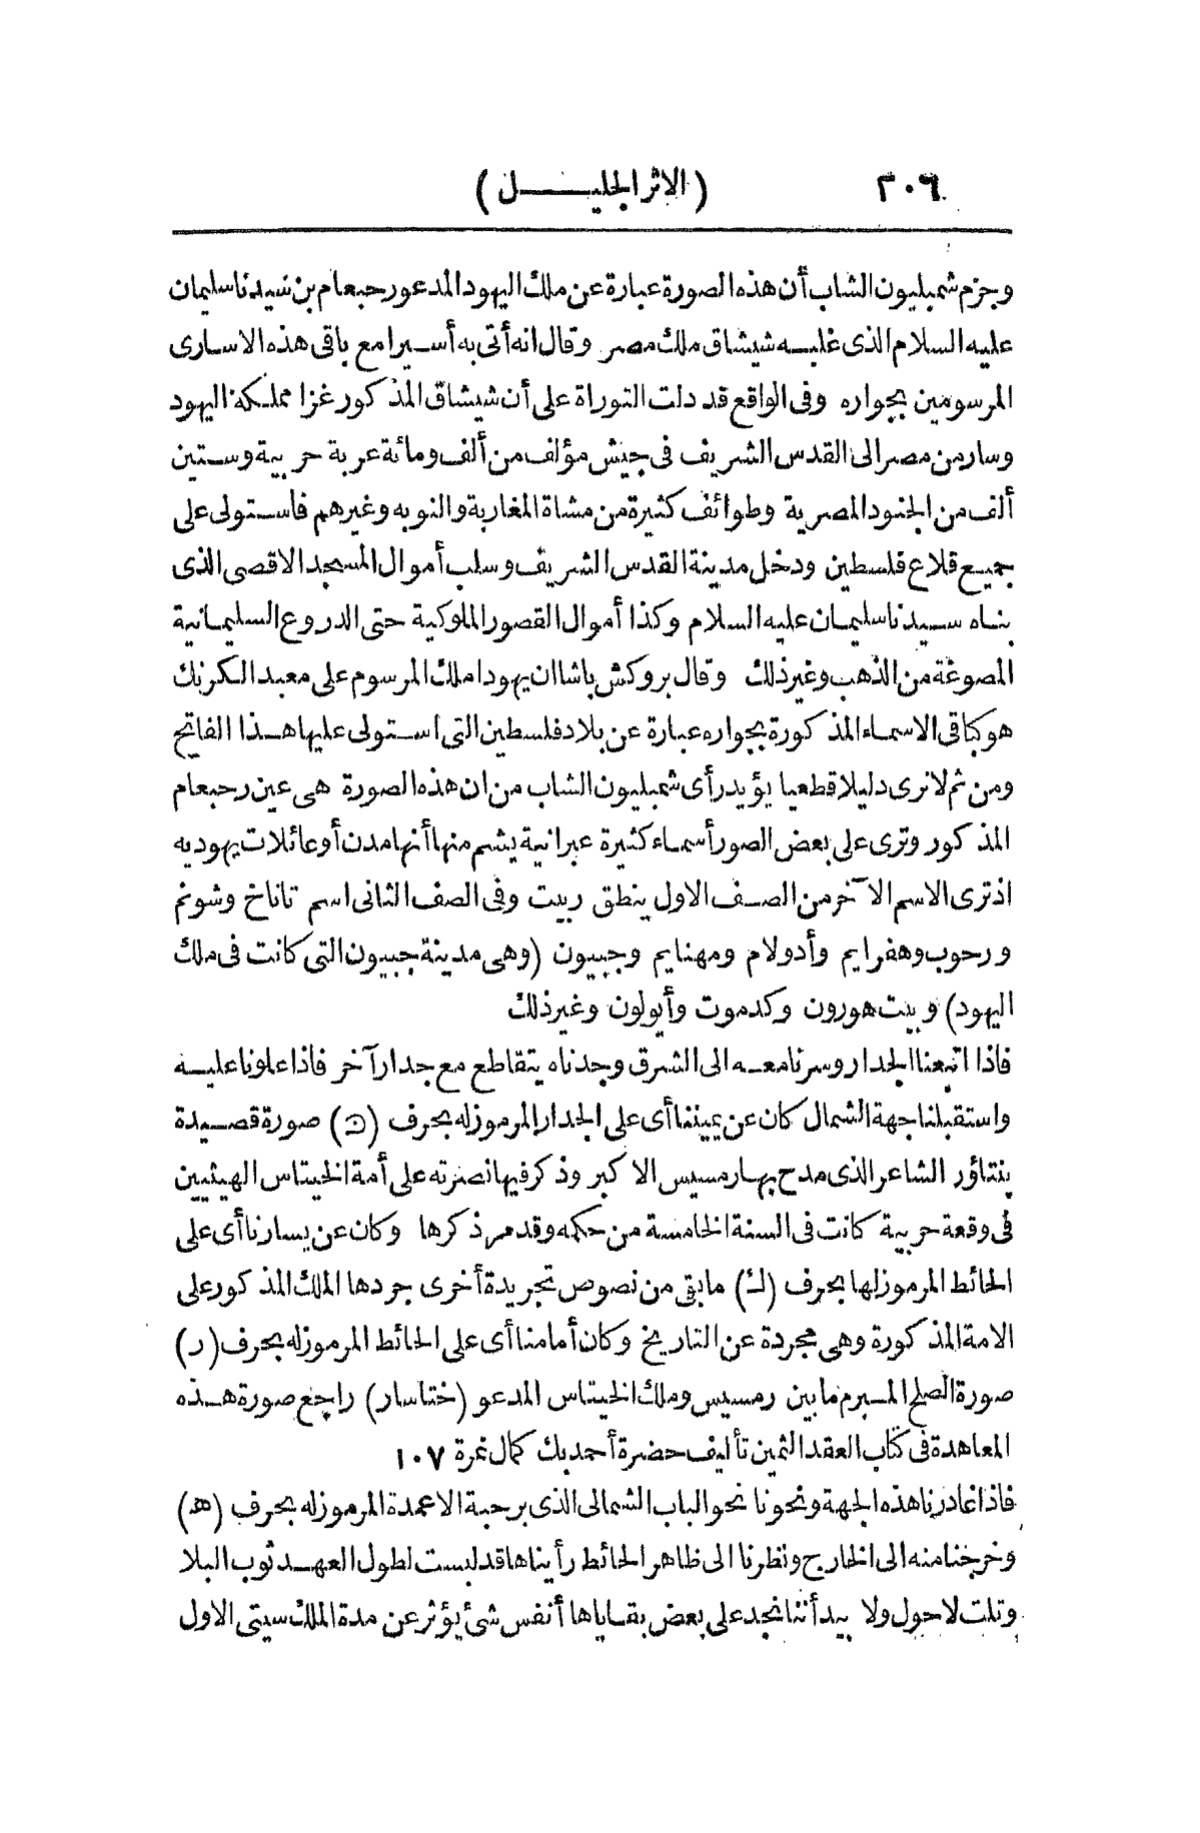 ٢٠٦ (الاثر الجليل)
وجزم شمبليون الشاب أن هذه الصورة عبارة عن ملك اليهود المدعو رحبعام بن سيدنا سليمان
عليه السلام الذى غلبه شيشاق ملك مصر وقال انه أتى به أسيرا مع باقى هذه الاسارى
المرسومين بجواره وفى الواقع قد دلت التوراة على أن شيشاق المذكور غزا مملكة اليهود
وسار من مصر الى القدس الشريف فى جيش مؤلف من ألف ومائة عربة حربية وستين
ألف من الجنود المصرية وطوائف كثيرة من مشاة المغاربة والنوبه وغيرهم فاستولى على
جميع قلاع فلسطين ودخل مدينة القدس الشريف وسلب أموال المسجد الاقصى الذى
بناه سيدنا سليمان عليه السلام وكذا أموال القصور الملوكية حتى الدروع السليمانية
المصوغة من الذهب وغير ذلك وقال بروكش باشا ان يهودا ملك المرسوم على معبد الكرنك
هو كباقى الاسماء المذكورة بجواره عبارة عن بلاد فلسطين التى استولى عليها هذا الفاتح
ومن ثم لا نرى دليلا قطعيا يؤيد رأى شمبليون الشاب من ان هذه الصورة هى عين رحبعام
المذكور وترى على بعض الصور أسماء كثيرة عبرانية يشم منها أنها مدن أو عائلات يهوديه
اذ ترى الاسم الآخر من الصف الاول ينطق ربيت وفى الصف الثانى اسم تاناخ وشونم
ورحوب وهفرايم وأدولام ومهنايم وجبيون (وهى مدينة جبيون التى كانت فى ملك
اليهود) وبيت هورون وكدموت وأيولون وغير ذلك
فاذا اتبعنا الجدار وسرنا معه الى الشرق وجدناه يتقاطع مع جدار آخر فاذا علونا عليه
واستقبلنا جهة الشمال كان عن يميننا أى على الجدار المرموز له بحرف () صورة قصيدة
بنتاؤر الشاعر الذى مدح بها رمسيس الاكبر وذكر فيها نصرته على أمة الخيتاس الهيثيين
فى وقعة حربية كانت فى السنة الخامسة من حكمه وقد مر ذكرها وكان عن يسارنا أى على
الحائط المرموز لها بحرف (ك) ما بقى من نصوص تجريدة أخرى جردها الملك المذكور على
الامة المذكورة وهى مجردة عن التاريخ وكان أمامنا أى على الحائط المرموز له بحرف (ر)
صورة الصلح المبرم ما بين رمسيس وملك الخيتاس المدعو (ختاسار) راجع صورة هذه
المعاهدة فى كتاب العقد الثمين تأليف حضرة أحمد بك كمال نمرة ١٠٧
فاذا غادرنا هذه الجهة ونحونا نحو الباب الشمالى الذى برحبة الاعمدة المرموز له بحرف (هـ)
وخرجنا منه الى الخارج ونظرنا الى ظاهر الحائط رأيناها قد لبست لطول العهد ثوب البلا
وتلت لا حول ولا بيد أننا نجد على بعض بقاياها أنفس شئ يؤثر عن مدة الملك سيتى الاول